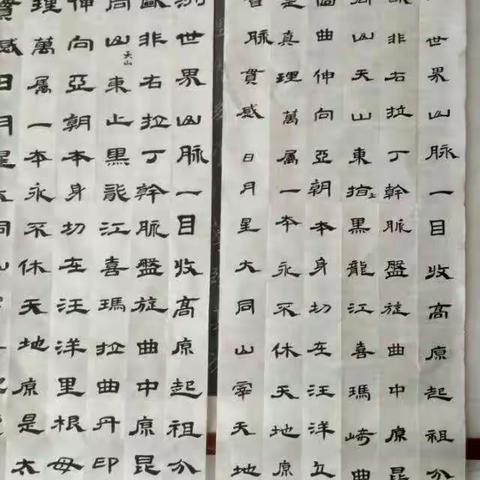 世界山脉一目收高原起祖分
非右拉丁幹脉盤旋曲中原昆
周山天山東止黑龍江喜瑪崎曲
個曲伸向亞朝本身切在汪洋
是真理萬属一本永不休天地原
脉貫感日月星大同山宰天地
洲世界山脉一目收高原起祖分
歐非右拉丁幹脉盤旋曲中原昆
周山天山東止黑龍江喜瑪拉曲丹印
伸向亞朝本身切在汪洋里根母
理萬属一本永不休天地原是太
貫感日月星大同山